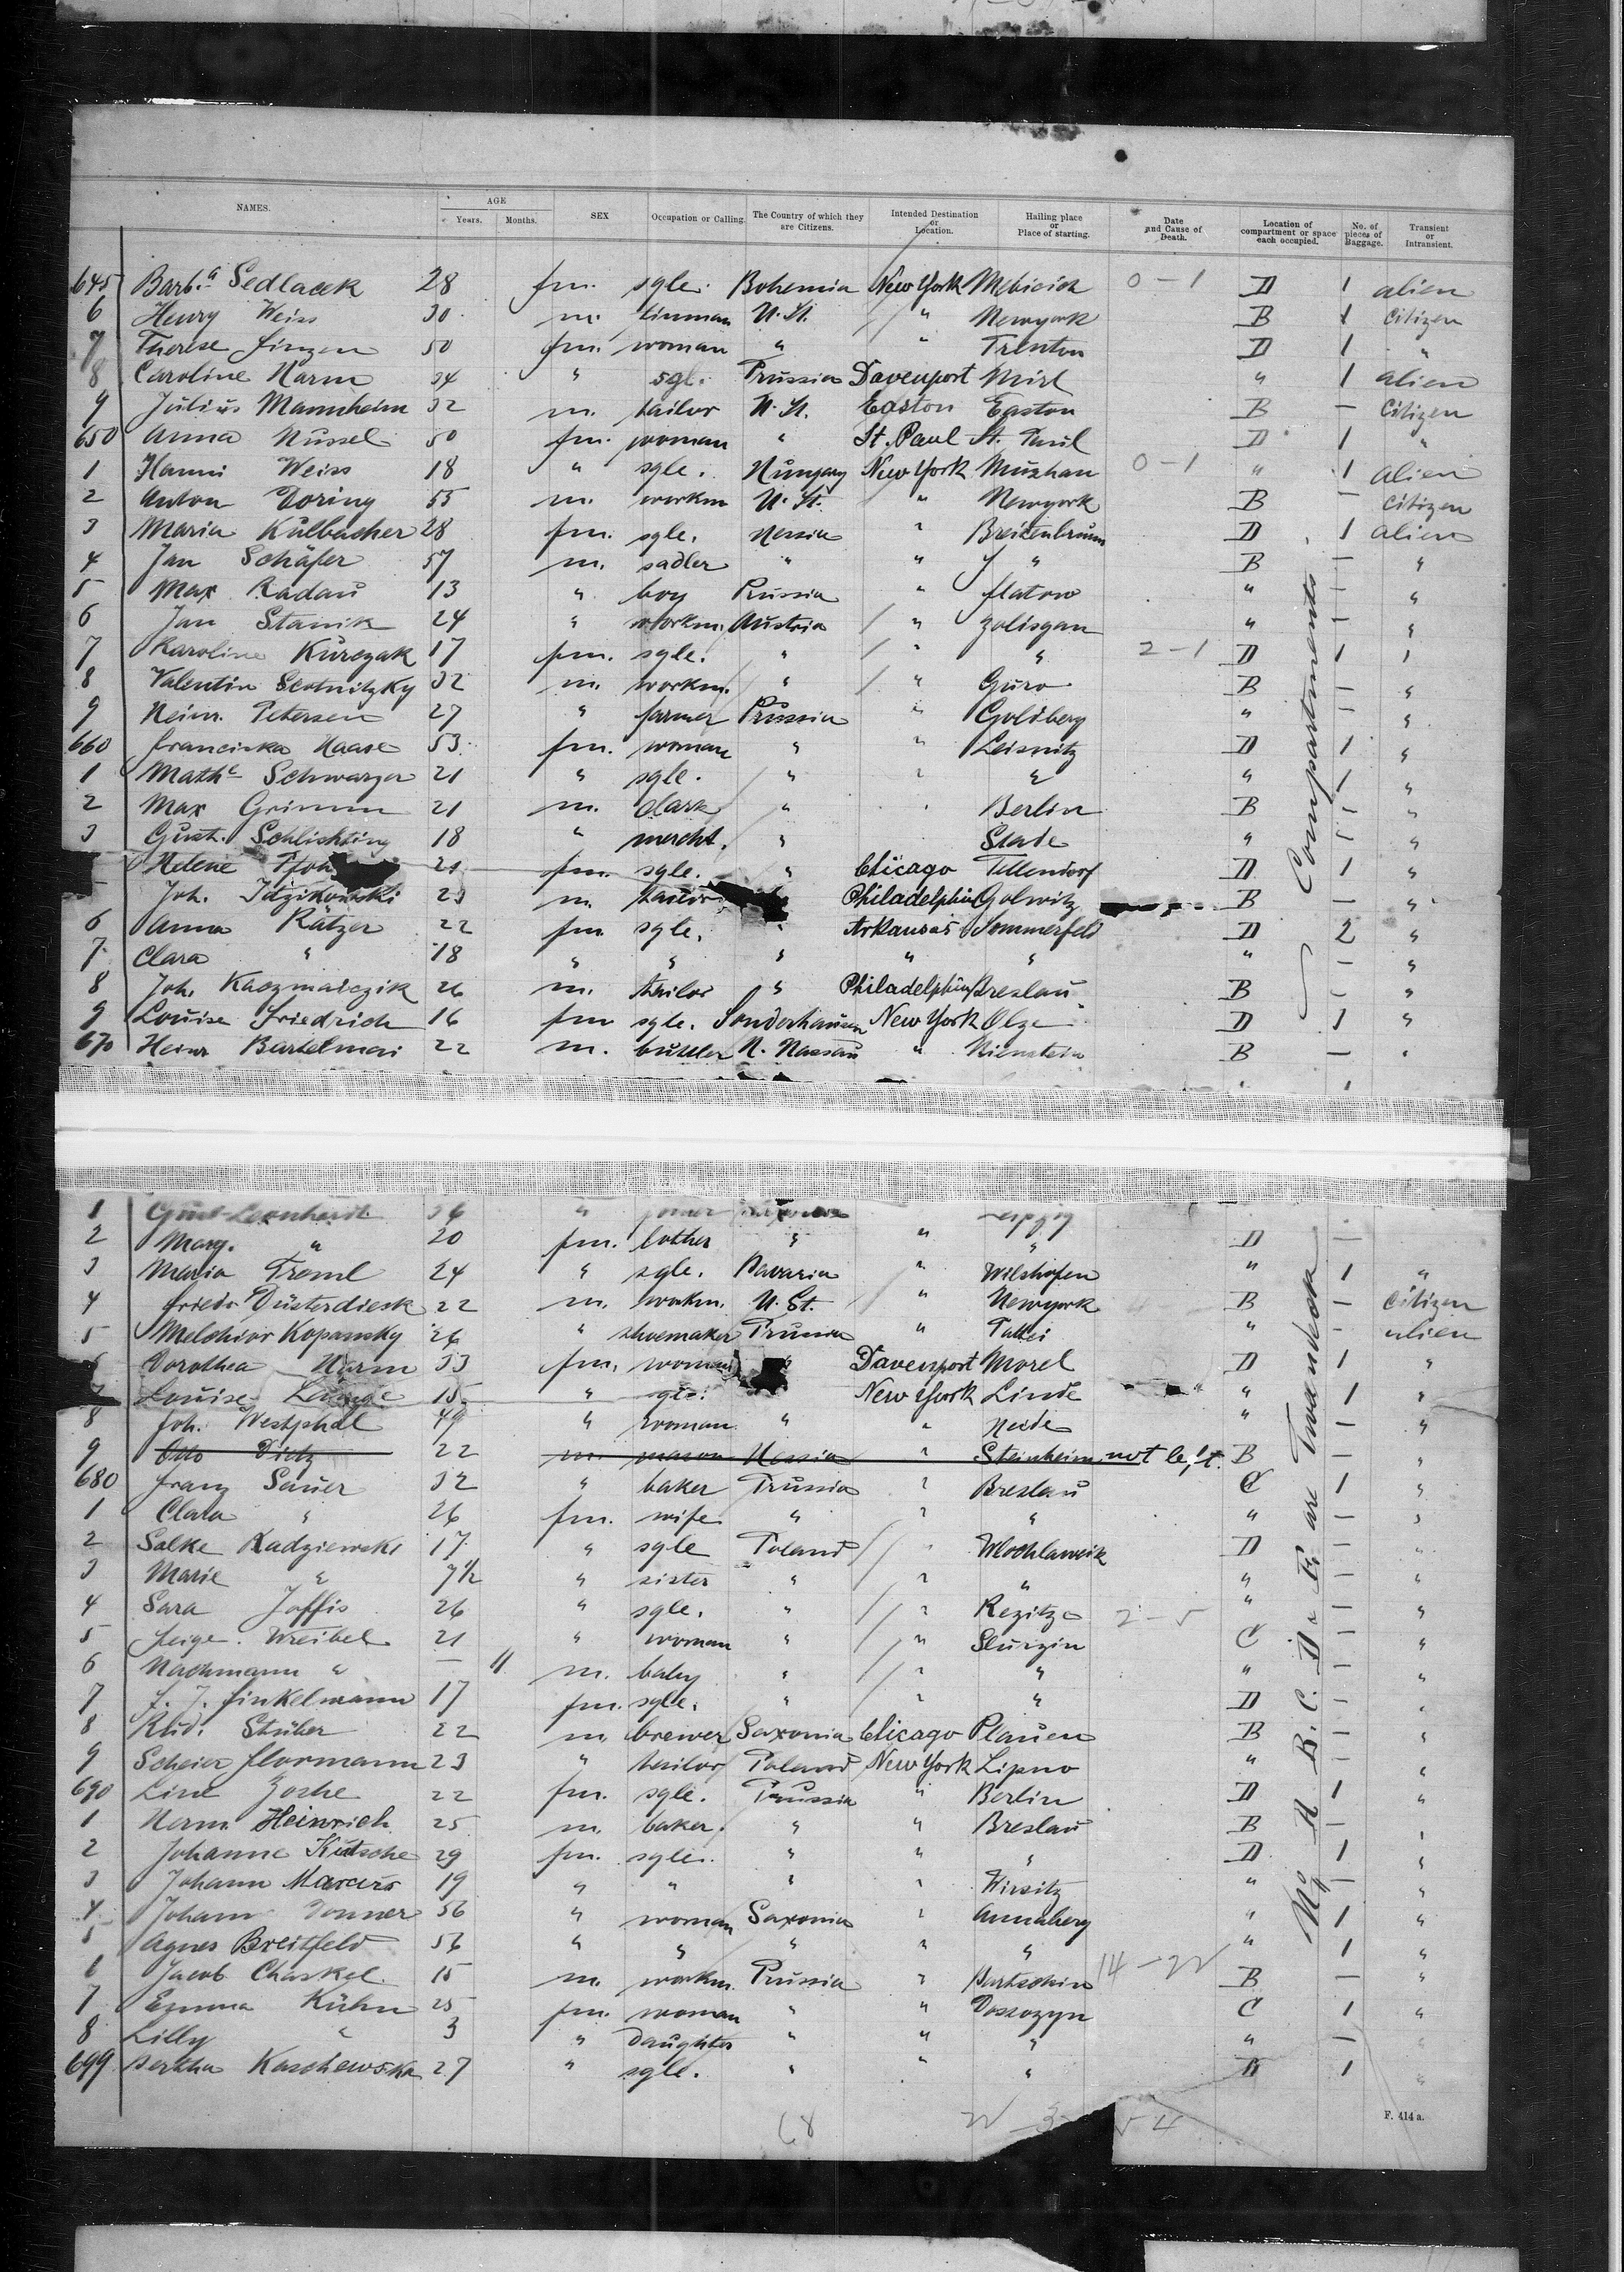 NAMES. AGE Years. Months. SEX Occupation or Calling. The Country of which they are Citizens. Intended Destination or Location. Hailing place or Place of starting. Date and Cause of Death. Location of compartment or space each occupied. No. of pieces of Baggage. Transient or Intransient.
645 Barb.a Sedlacek 28 fm. sgle. Bohemia New York 0-1 D 1 alien
6 Henry Weiss 30 m. tinman U. St. " Newyork B 1 citizen
7 Therese 50 fm. woman " " Trenton D 1 "
8 Caroline Harm 34 " sgl. Prussia Davenport " 1 alien
9 Julius Mannheim 32 m. tailor U. St. Easton Easton B — citizen
650 Anna Nüssel 50 fm. woman " St. Paul St. Paul D 1 "
1 Hanni Weiss 18 " sgle. Hungary New York 0-1 " 1 alien
2 Anton Doring 55 m. workm U. St. " Newyork B — citizen
3 Maria Külbacher 28 fm. sgle. Hessia " Breitenbrunn D 1 alien
4 Jan Schäfer 57 m. sadler " " " B — "
5 Max Radau 13 " boy Russia " flatow " — "
6 Jan Stanik 24 " workm. Austria " " — "
7 Karoline Kurczak 17 fm. sgle. " " " 2-1 D 1 "
8 Valentin Scotnitzky 32 m. workm. " " Guro B — "
9 Heinr. Petersen 27 " farmer Prussia " Goldberg " — "
660 franciska Haase 53 fm. woman " " Leisnitz D 1 "
1 Mathe Schwarzer 21 " sgle. " " " " 1 "
2 Max Grimm 21 m. Clark " " Berlin B — "
3 Gust. Schlichting 18 " mercht. " Stade " — "
Helene 21 fm. sgle. " Chicago Tellendorf D 1 "
Joh. Idzikowski 23 m. tailor Philadelphia Golwitz B — "
6 Anna Rätzer 22 fm. sgle. " Arkansas Sommerfeld D 2 "
7 Clara " 18 " " " " " " — "
8 Joh. Kaczmarczik 26 m. tailor " Philadelphia Breslau B — "
9 Louise Friedrich 16 fm sgle. Sonderhausen New York Olze D 1 "
670 Heinr Bartelmei 22 m. H. Nassau " Nienstein B — "
1 Leonhardt 36 "
2 Marg. " 20 fm. " " " D —
3 Maria Treml 24 " sgle. Bavaria " Wilshofen " 1 "
4 friedr Düsterdieck 22 m. workm. U. St. " Newyork B — citizen
5 Melchior Kopansky 26 " shoemaker Prussia " " — alien
Dorothea Harm 33 fm. woman Davenport Morel D 1 "
Louise 15 " sgle. New York Linde " 1 "
8 Joh. Westphal 49 " woman " " " — "
9 Otto Dietz 22 m. mason Hessia " Steinheim not left. B — "
680 franz Sauer 32 " baker Prussia " Breslau C 1 "
1 Clara " 26 fm. wife " " " " — "
2 Salke Radziewski 17 " sgle Poland " Wloclaweik D — "
3 Marie " 7½ " sister " " " " — "
4 Sara Joffis 26 " sgle. " " Rezitza 2-5 " — "
5 feige. Wreibel 21 " woman " " C — "
6 Nachmann " — 11 m. baby " " " " — "
7 f. J. finkelmann 17 fm. sgle. " " " D — "
8 Rud. Stüber 22 m. brewer Saxonia Chicago Plauen B — "
9 Scheier flormann 23 " tailor Poland New York Lipno " — "
690 Line Zoshe 22 fm. sgle. Prussia " Berlin D 1 "
1 Herm. Heinrich 25 m. baker. " " Breslau B — "
2 Johanne Kutsche 29 fm. sgle. " " " D 1 "
3 Johann Marcus 19 " " " " Wirsitz " — "
4 Johann Donner 56 " woman Saxonia " Annaberg " 1 "
5 Agnes Breitfeld 56 " " " " " " 1 "
6 Jacob Chaskel 15 m. workm. Prussia " Bartschin 14-22 B — "
7 Emma Kühn 25 fm. woman " " C 1 "
8 Lilly " 3 " daughter " " " " — "
699 Bertha Kaschewska 27 " sgle. " " " D 1 "
Compartments
No A. B. C. D. E. are Twandeck
F. 414 a.